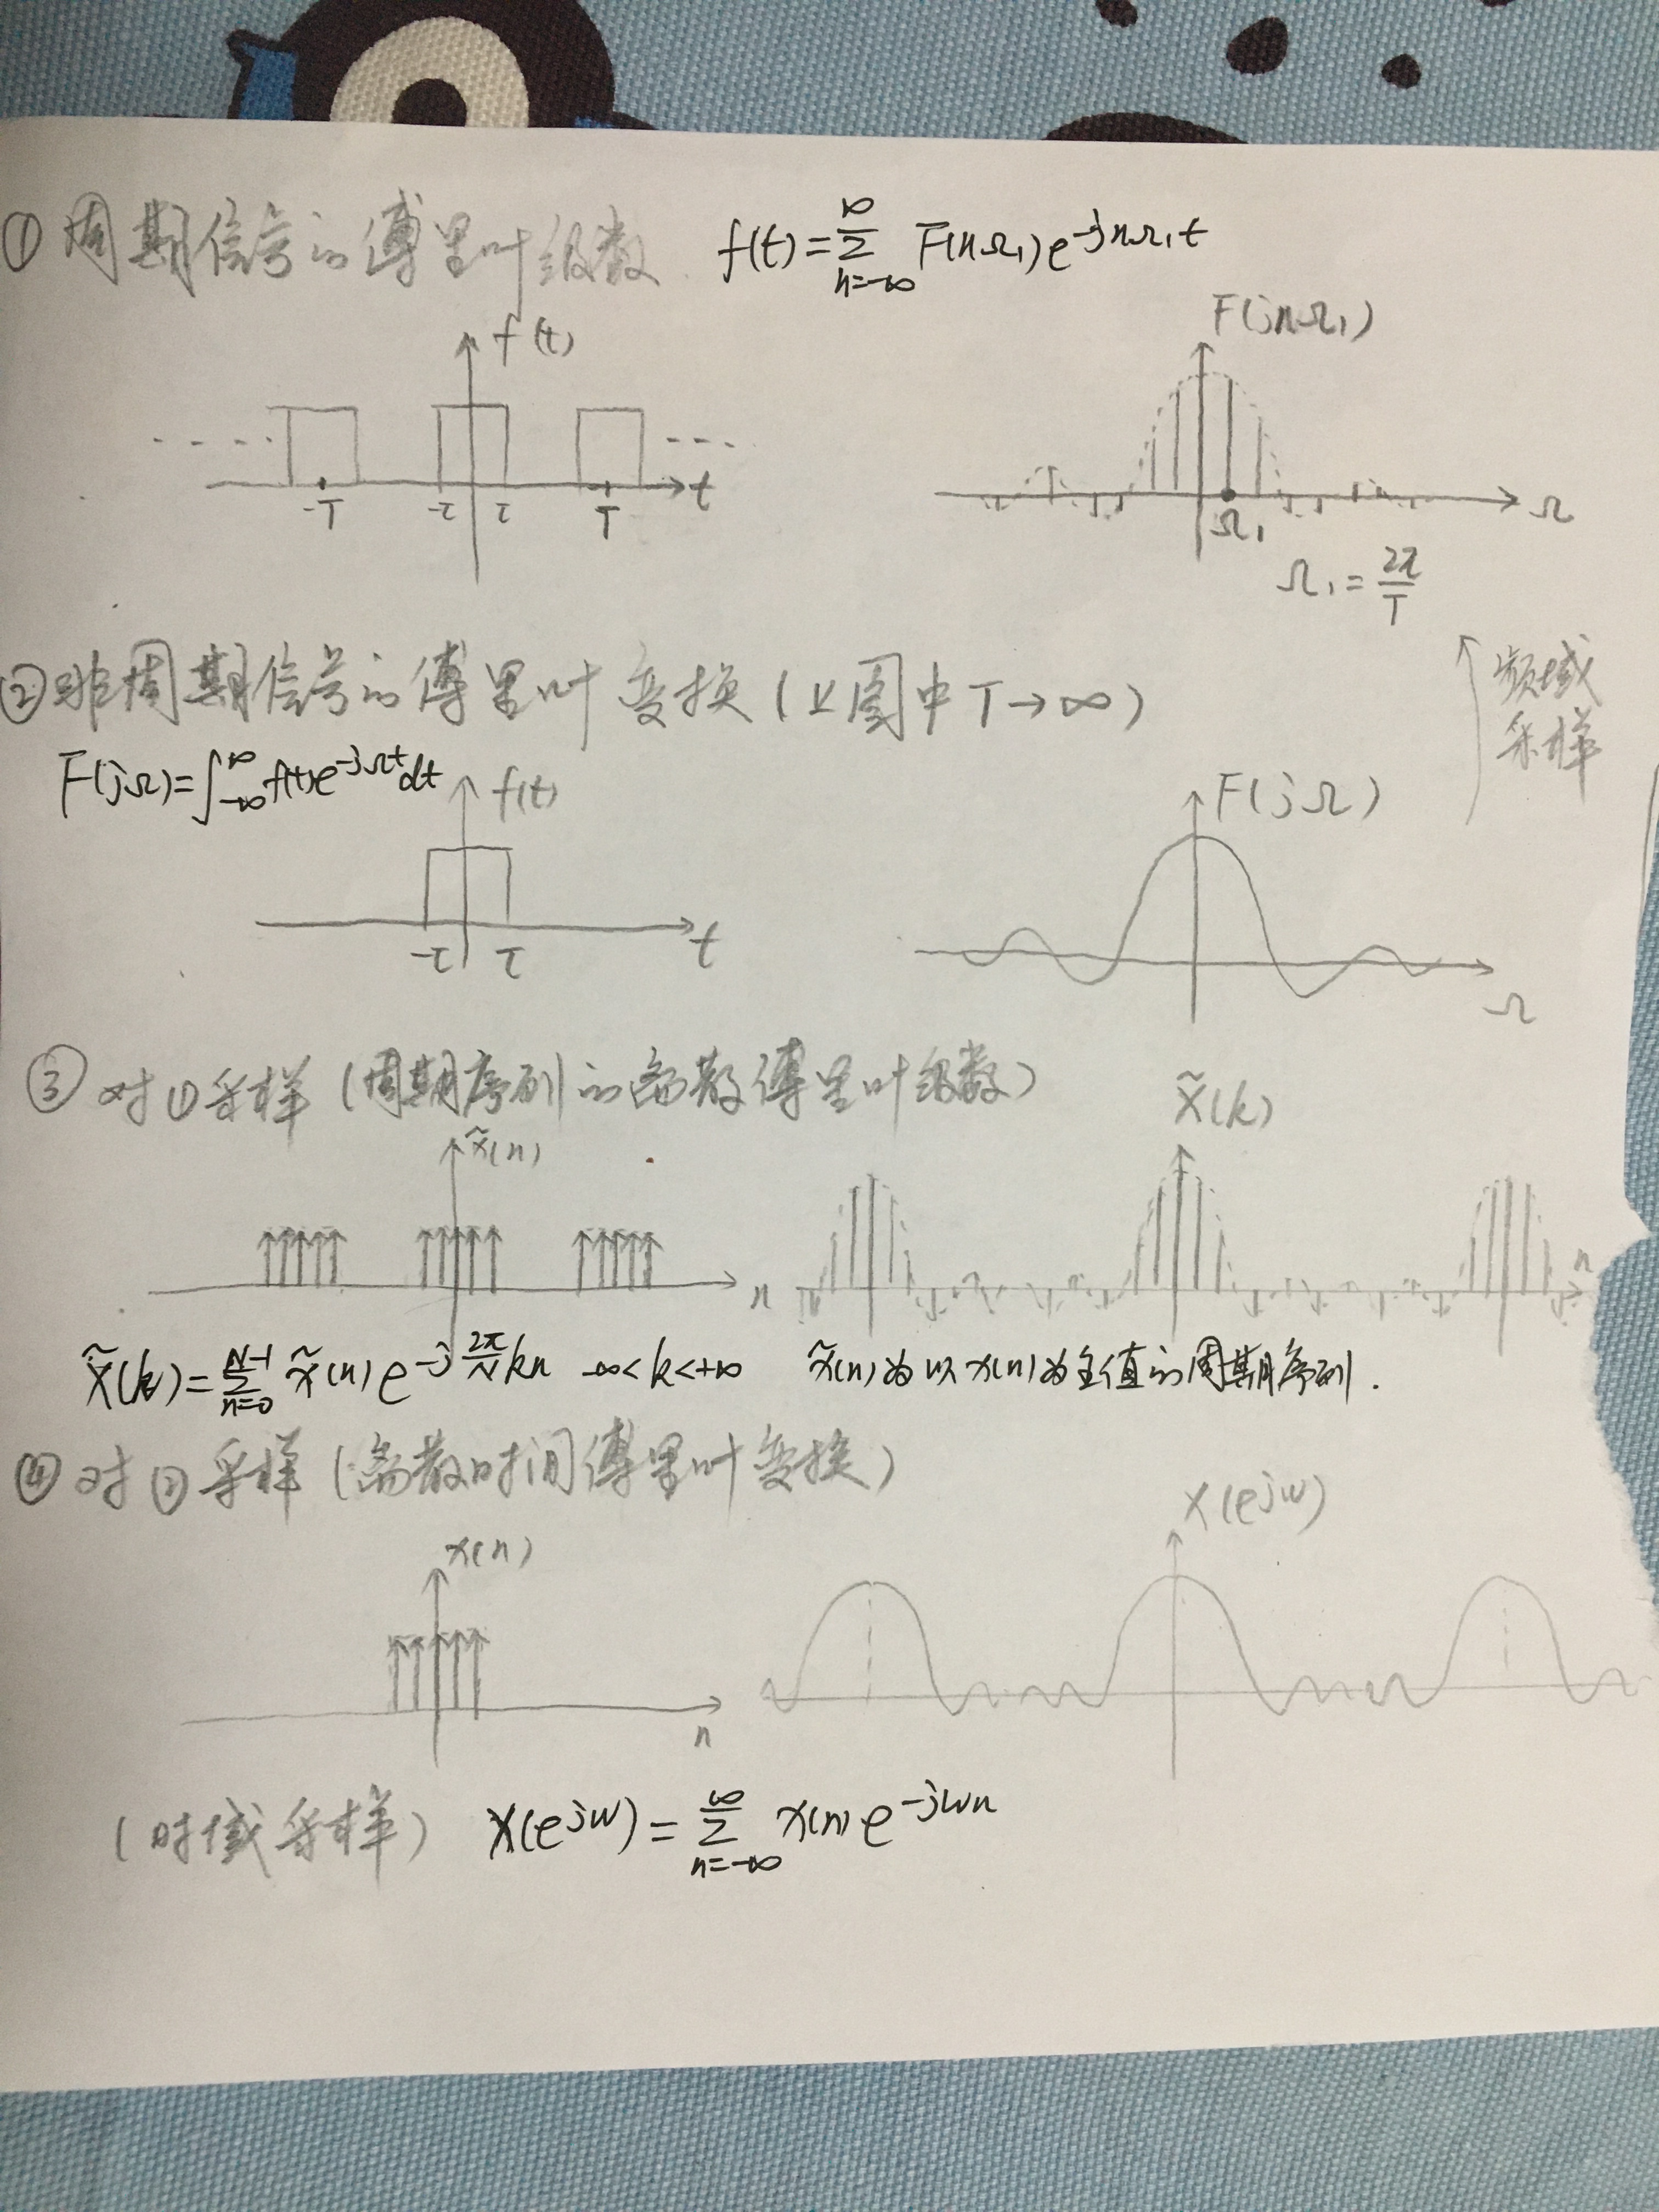 ① 周期信号的傅里叶级数 f(t)=∑_{n=-∞}^{∞} F(nΩ₁)e^{-jnΩ₁t}
f(t)
F(jnΩ₁)
-T -τ τ T t
Ω₁ Ω
Ω₁=2π/T
② 非周期信号的傅里叶变换(上图中T→∞)
频域
采样
F(jΩ)=∫_{-∞}^{∞} f(t)e^{-jΩt}dt
f(t)
F(jΩ)
-τ τ t
Ω
③ 对①采样(周期序列的离散傅里叶级数)
x̃(n)
X̃(k)
n
n
X̃(k)=∑_{n=0}^{N-1} x̃(n)e^{-j\frac{2π}{N}kn} -∞<k<+∞ x̃(n)为以x(n)为主值的周期序列.
④ 对②采样(离散时间傅里叶变换)
x(n)
X(e^{jw})
n
(时域采样) X(e^{jw})=∑_{n=-∞}^{∞} x(n)e^{-jwn}